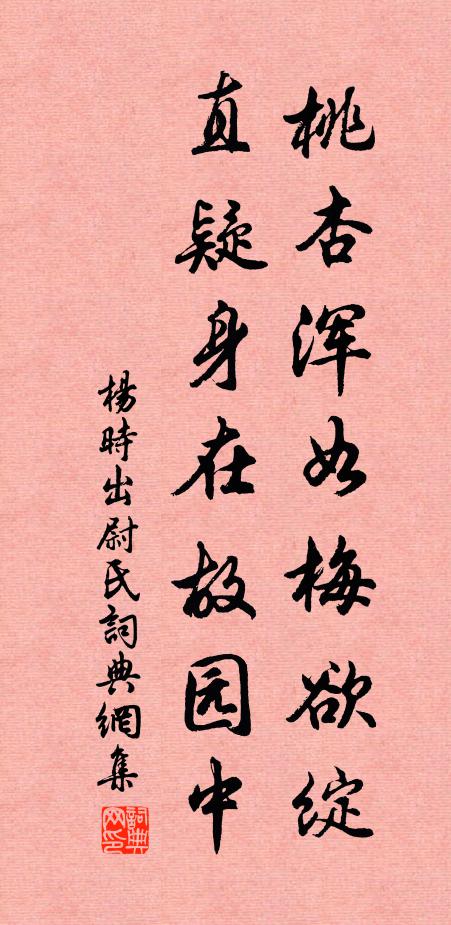 桃杏浑如梅欲绽
直疑身在故园中
楊時出尉氏詞典網集
詞典网印